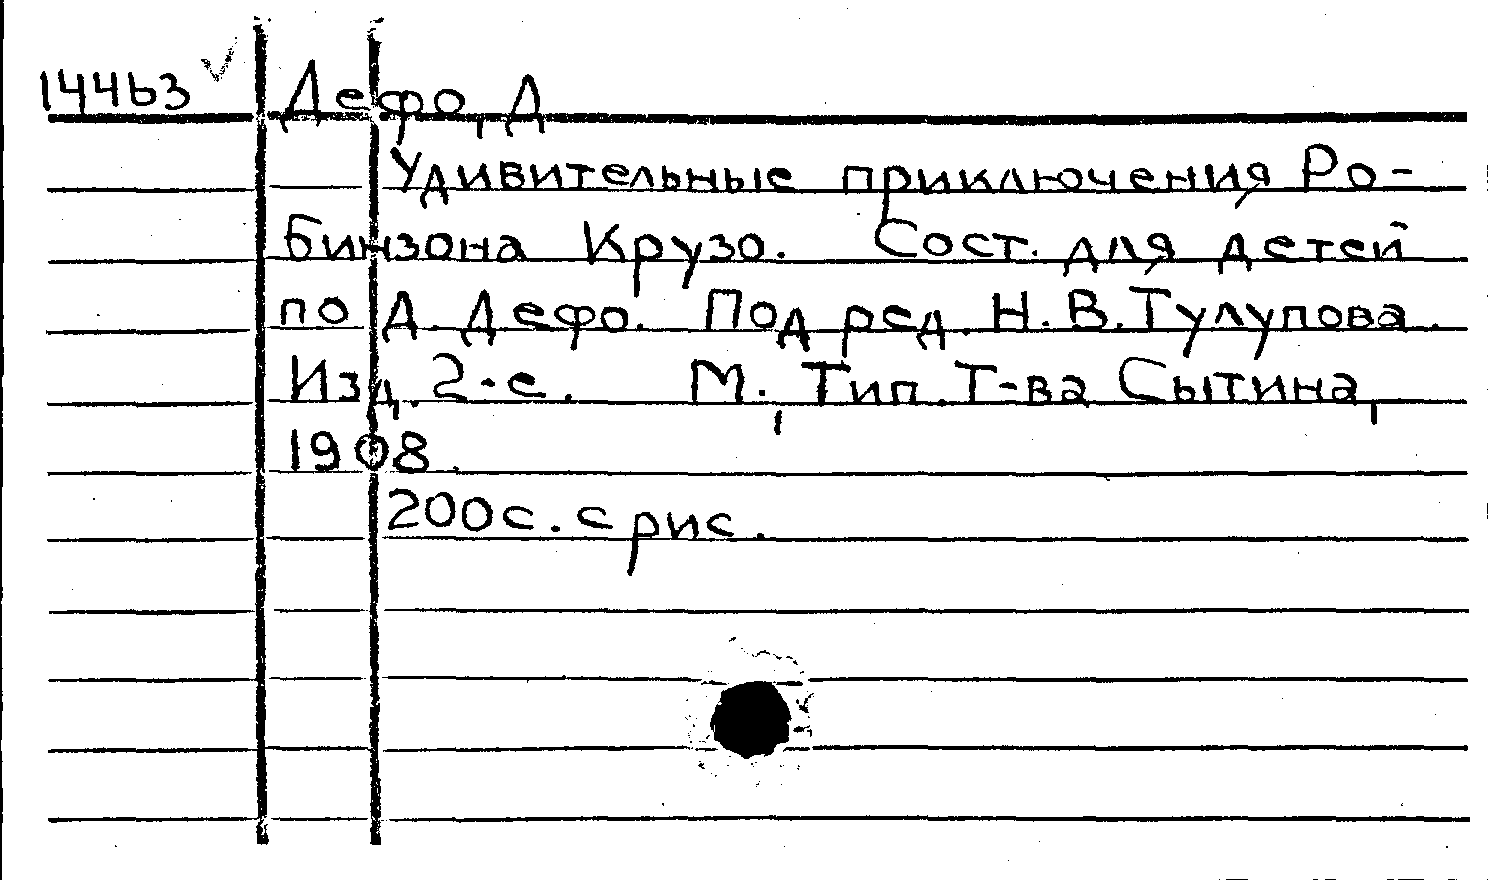 14463 Дефо, Д
Удивительные приключения Ро-
бинзона Крузо. Сост. для детей
по Д. Дефо. Под ред. Н. В. Тулупова.
Изд. 2-е. М., Тип. Т-ва Сытина,
1908.
200 с. с рис.